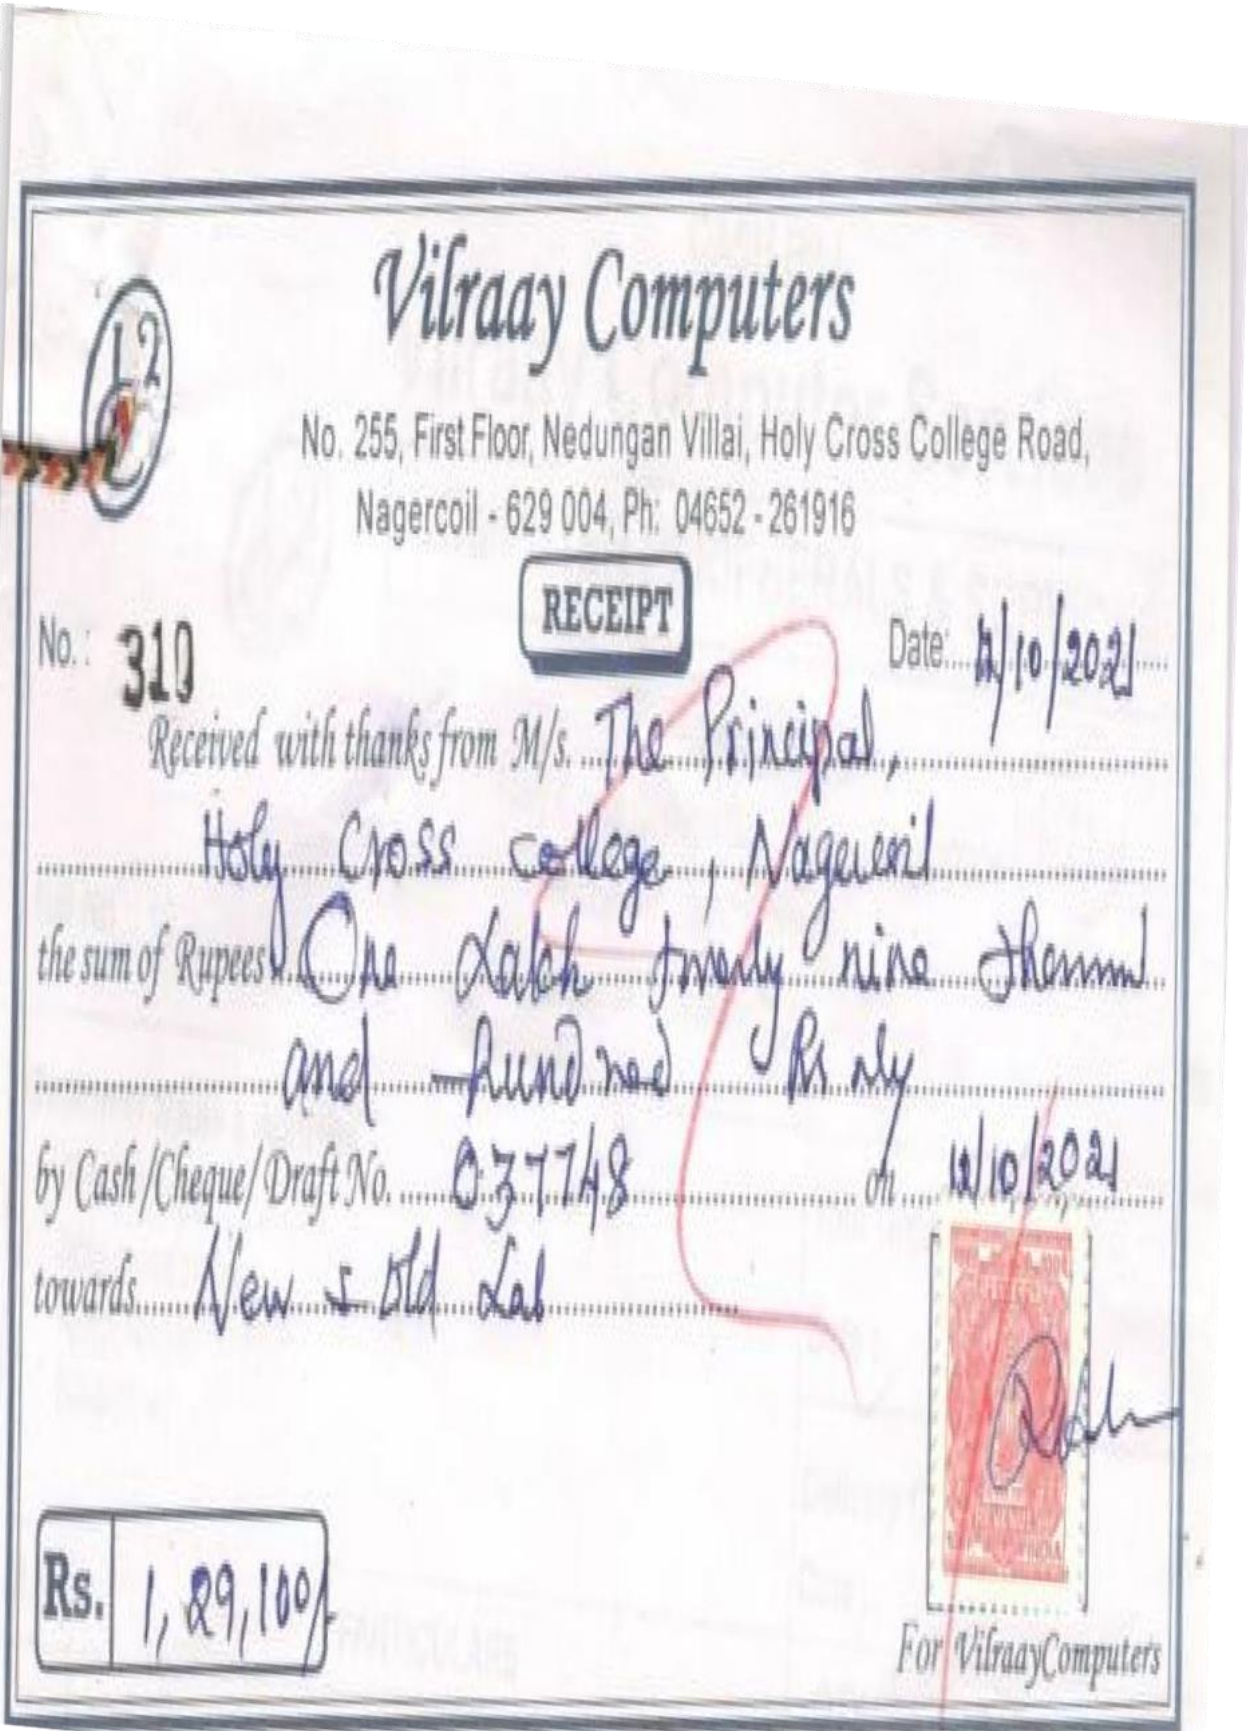 12
Vilraay Computers
No. 255, First Floor, Nedungan Villai, Holy Cross College Road,
Nagercoil - 629 004, Ph: 04652 - 261916
RECEIPT
No. : 310 Date: 12/10/2021
Received with thanks from M/s. The Principal,
Holy Cross College, Nagercoil
the sum of Rupees One Lakh twenty nine
and hundred Rs only
by Cash /Cheque/ Draft No. 037748 on 12/10/2021
towards New & Old Lab
Rs. 1,29,100/-
INDIA
For VilraayComputers